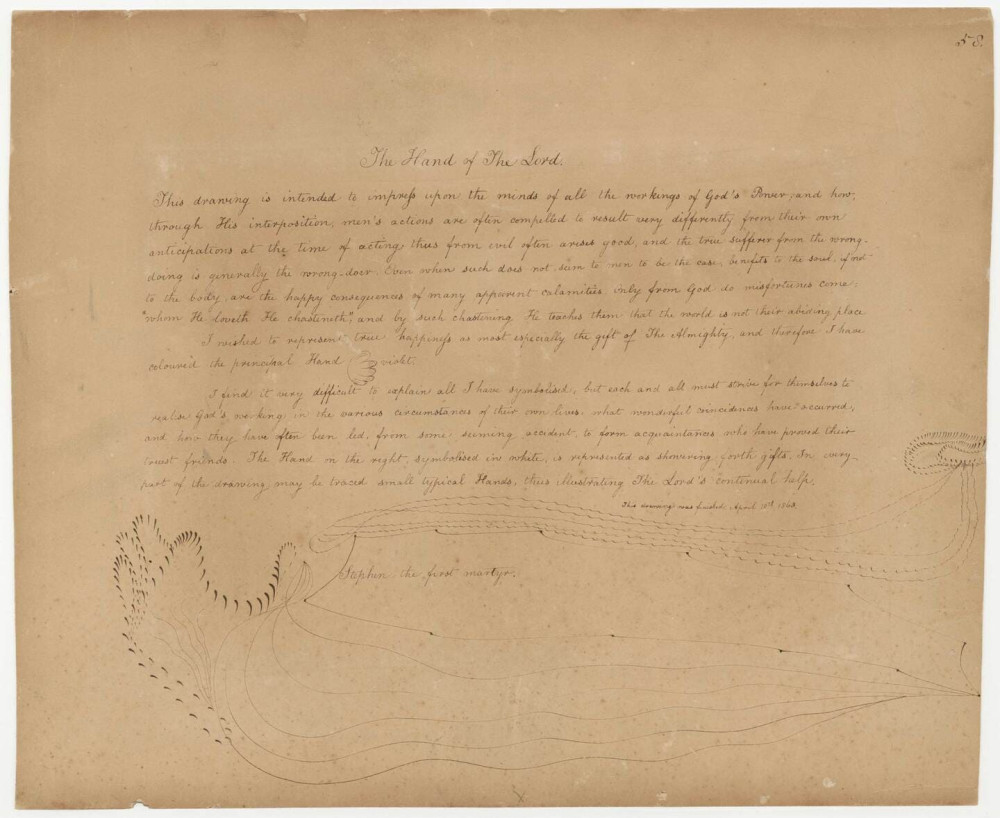 58.
The Hand of The Lord.
This drawing is intended to impress upon the minds of all the workings of God's Power, and how,
through His interposition, men's actions are often compelled to result very differently from their own
anticipations at the time of acting, thus from evil often arises good, and the true sufferer from the wrong-
doing is generally the wrong-doer. Even when such does not seem to men to be the case, benefits to the soul, if not
to the body, are the happy consequences of many apparent calamities. Only from God do misfortunes come;
"whom He loveth He chasteneth", and by such chastening He teaches them that the world is not their abiding place.
I wished to represent true happiness as most especially the gift of The Almighty, and therefore I have
coloured the principal Hand violet.
I find it very difficult to explain all I have symbolised, but each and all must strive for themselves to
realise God's working in the various circumstances of their own lives; what wonderful coincidences have occurred,
and how they have often been led, from some seeming accident, to form acquaintances who have proved their
truest friends. The Hand on the right, symbolised in white, is represented as showering forth gifts. In every
part of the drawing may be traced small typical Hands, thus illustrating The Lord's continual help.
This drawing was finished April
Stephen the first martyr.